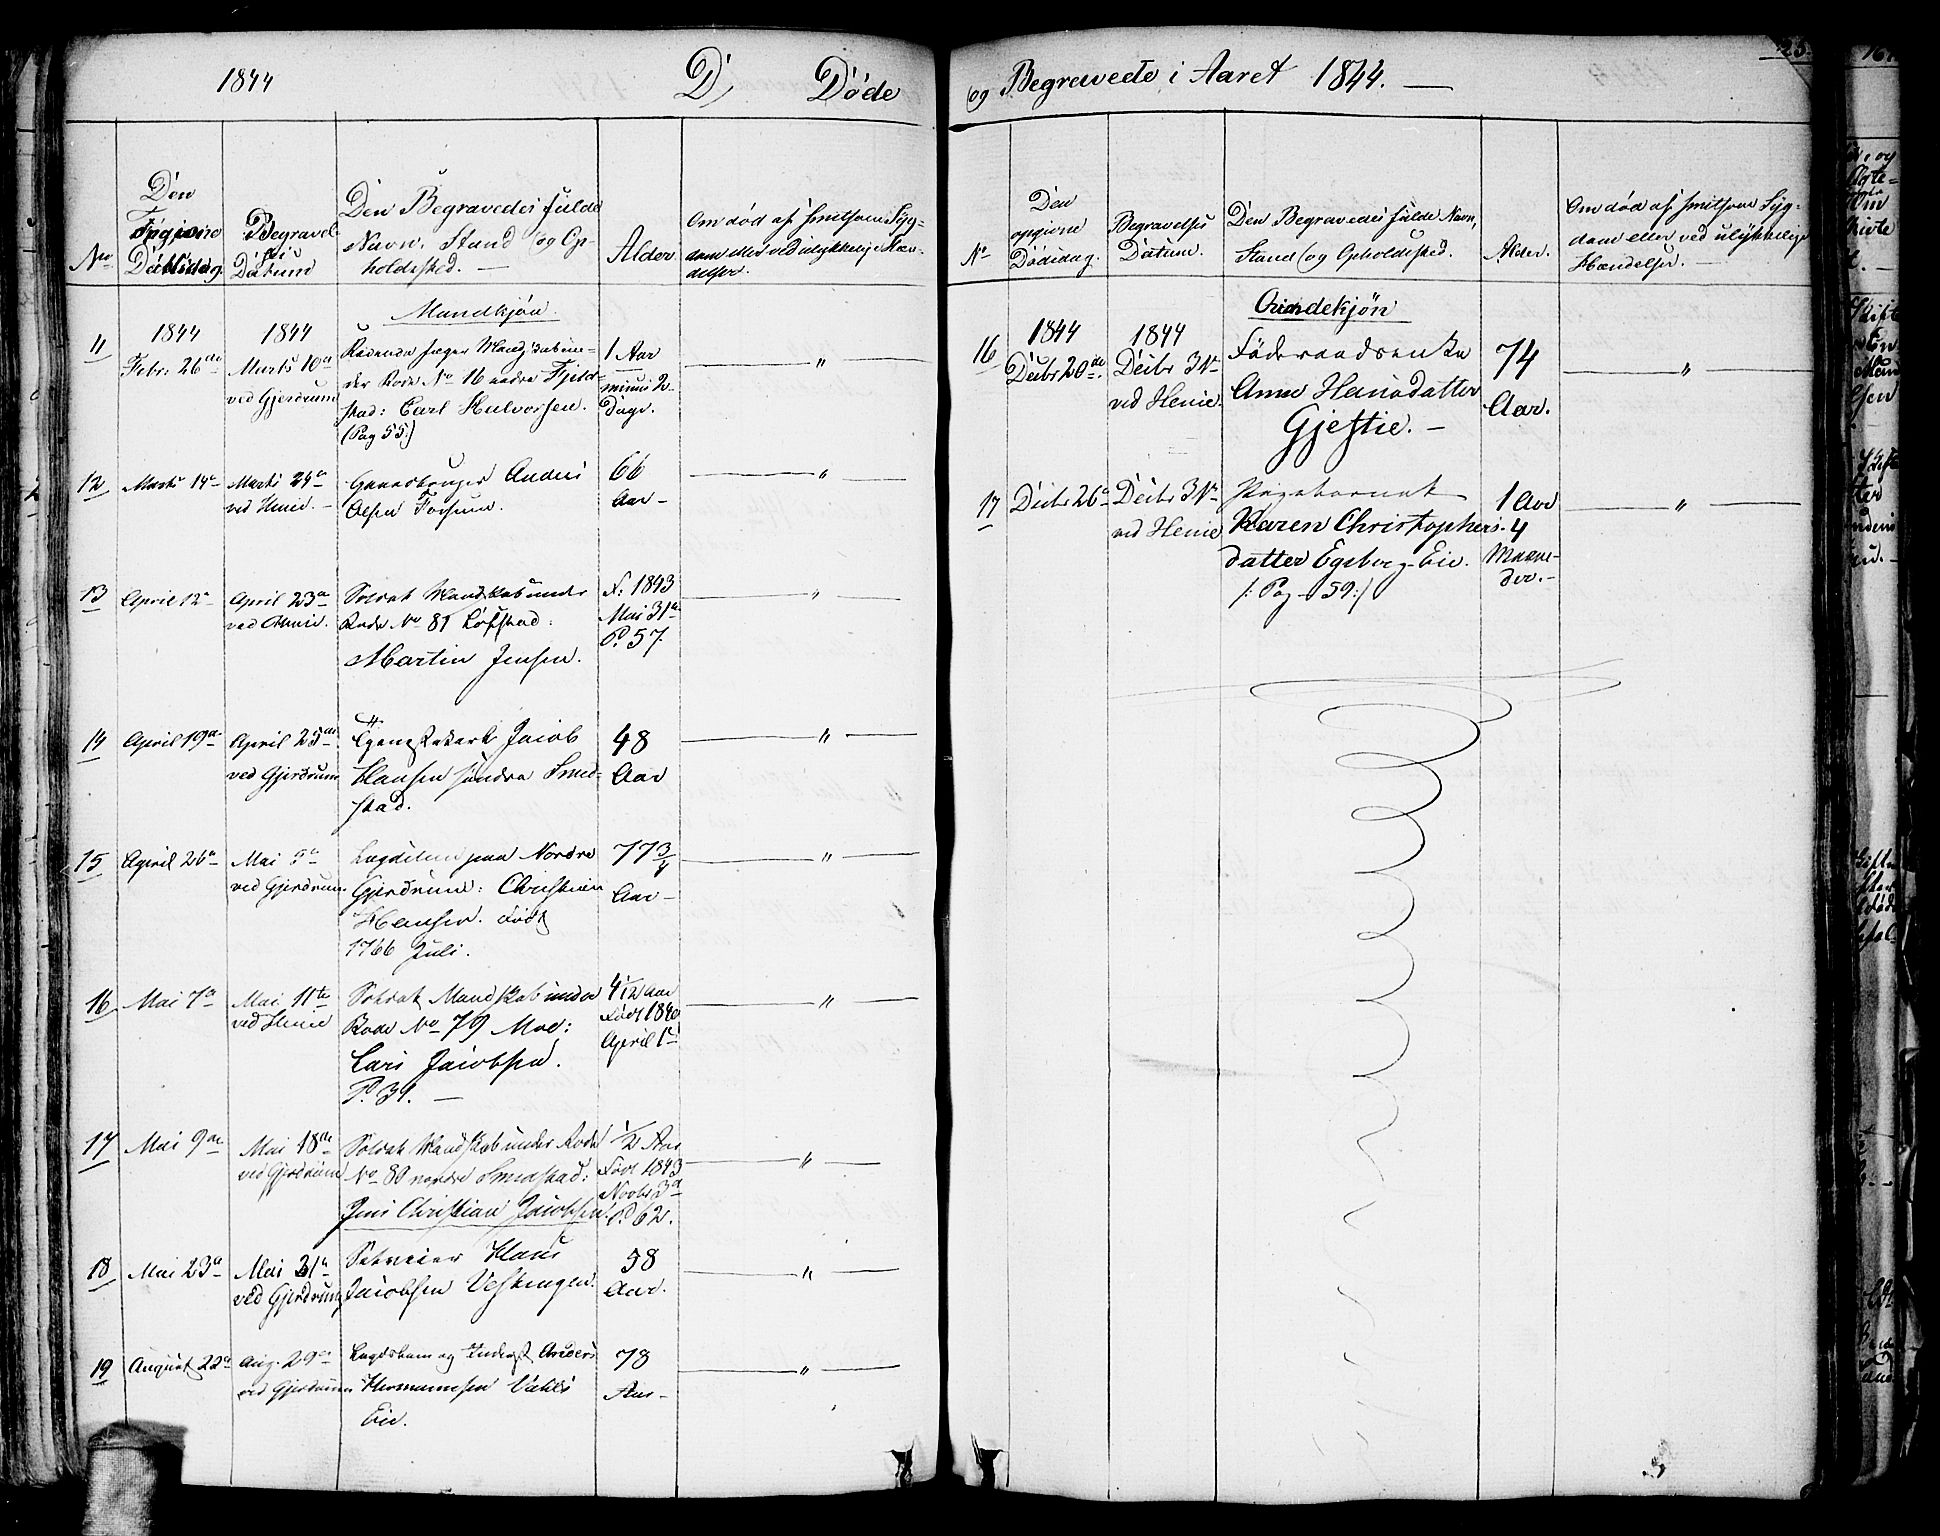 1844
D, Døde
No
Den
Opgivne
Dødsdag.
Begravel-
ses
Datum
Den Begravedes fulde
Navn, Stand og Op-
holdssted. —
Alder
Om død af smitsom Syg-
dom eller ved ulykkelig Hæn-
delser.
Mandkjøn
11
1844
Febr. 26de
1844
Marts 10de
ved Gjerdrum
Mandskab un-
der Rode No 16
stad: Carl Halvorsen.
(Pag 55)
1 Aar
minus 2
Dage.
"
12
Marts 14de
Marts 24de
ved Henie. —
Gaardbruger Anders
Olsen Fossum.
66
Aar —
"
13
April 12te
April 23de
ved Henie.
Soldat Mandskab under
Rode No 81 Løfstad:
Martin Jensen.
F: 1843
Mai 31te
P. 57
"
14
April 19de
April 25de
ved Gjerdrum
Tjenestekarl Jacob
Hansen søndre Smed-
stad.
48
Aar
"
15
April 26de
Mai 5te
ved Gjerdrum
Lægdslem paa Nordre
Gjerdrum: Christian
Hansen. født
1766 Juli.
77 3/4
Aar —
"
16
Mai 7de
Mai 11te
ved Henie
Soldat Mandskab under
Rode No 79 Moe:
Lars Jacobsen.
P. 31. —
4 1/12 Aar
Født 1840
April 1ste
"
17
Mai 9de
Mai 18de
ved Gjerdrum
Soldat Mandskab under Rode
No 80 nordre Smedstad:
Jens Christian Jacobsen.
1/2 Aar
Født 1843
Novbr 3de
P. 62.
"
18
Mai 23de
Mai 31te
ved Gjerdrum
Selveier Hans
Jacobsen Vestengen.
58
Aar.
"
19
August 22de
Aug. 29de
ved Gjerdrum
Lægdslem og Inderst Anders
Hermansen
Eie.
78
Aar —
"
og Begravede i Aaret 1844. —
No
Den
opgivne
Dødsdag.
Begravelses
Datum.
Den Begravedes fulde Navn,
Stand og Opholdssted.
Alder.
Om død af smitsom Syg-
dom eller ved ulykkelige
Hændelser. —
Qvindekjøn
16
1844
Decbr 20de
1844
Decbr 31te
ved Henie
Føderaadsenke
Anne Hansdatter
Gjestie. —
74
Aar.
"
17
Decbr 26de
Decbr 31te
ved Henie
Pigebarnet
Karen Christophers-
datter Egeberg-Eie.
/: Pag - 59:/
1 Aar
4
Maane-
der. —
"